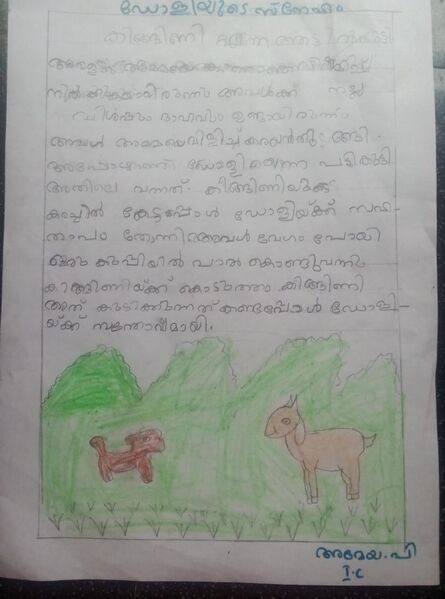 ഡോളിയുടെ സ്നേഹം
കിങ്ങിണി എന്ന ആട്ടിൻകുട്ടി
അവളുടെ അമ്മയെ കാത്ത്
നിൽക്കുകയായിരുന്നു അവൾക്ക് നല്ല
വിശപ്പും ദാഹവും ഉണ്ടായിരുന്നു
അവൾ അമ്മയെവിളിച്ച് കരയാൻതുടങ്ങി.
അപ്പോഴാണ് ഡോളിയെന്ന പട്ടികുട്ടി
അതിലെ വന്നത്. കിങ്ങിണിയുടെ
കരച്ചിൽ കേട്ടപ്പോൾ ഡോളിയ്ക്ക് സങ-
താപം തോന്നി അവൾ വേഗം പോയി
ഒരു കുപ്പിയിൽ പാൽ കൊണ്ടുവന്നു
കിങ്ങിണിയ്ക്ക് കൊടുത്തു കിങ്ങിണി
അത് കുടിക്കുന്നത് കണ്ടപ്പോൾ ഡോളി-
യ്ക്ക് സന്തോഷമായി.
അമേയ. പി
I. C